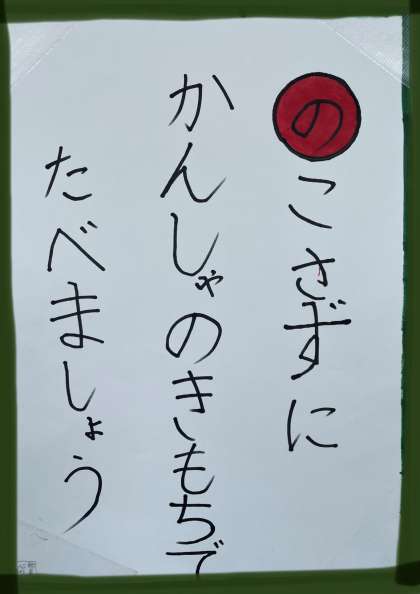 のこさずに
かんしゃのきもちで
たべましょう